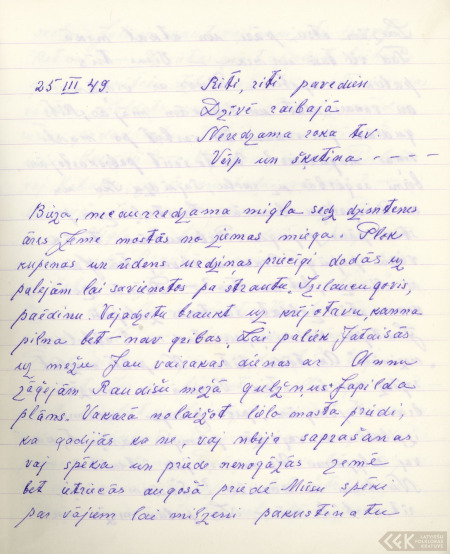 25 III 49. Riti, riti pavedien
Dzīvē raibajā
Neredzama roka tev
Vērp un šķetina - - - -
Bieza, necaurredzama migla sedz dzimtenes
āres Zeme mostās no ziemas miega. Plok
kupenas un ūdens urdziņas priecīgi dodās uz
palejām lai savienotos pa strautu. Izslaucu govis,
paēdinu. Vajadzētu braukt uz krējotavu, kanna
pilna bet - nav gribas. Lai paliek. Jātaisās
uz mežu Jau vairakas dienas ar Annu
zāģējām Raudišu mežā guļbaļķus. Japilda
plāns. Vakarā nolaižot lielo masta priedi,
ka gadijās ka ne, vaj nbija saprašanas
vaj spēka un priede nenogāzās zemē
bet ietriecās augošā priedē Mūsu spēki
par vājiem lai milzeni pakustinatu
LATVIEŠU
FOLKLORAS
KRĀTUVE